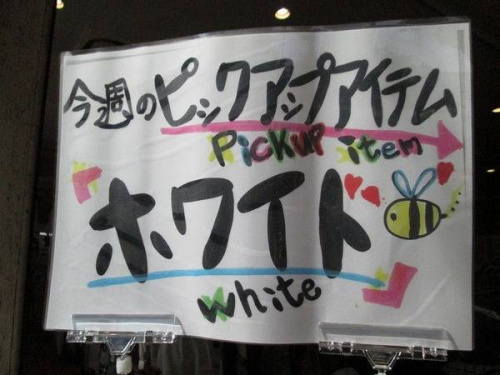 今週のピックアップアイテム
PiCKUP item
ホワイト
white